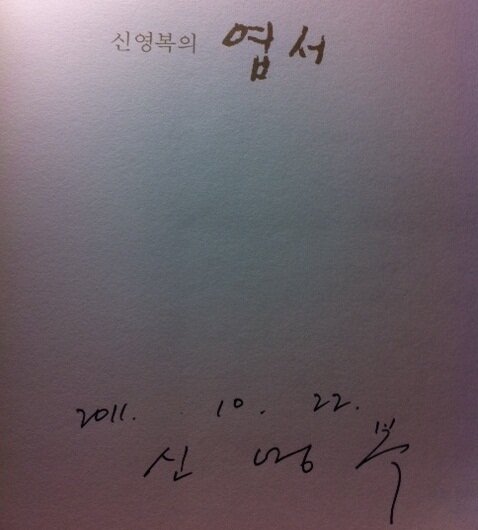 신영복의 엽서
2011. 10. 22.
신영복